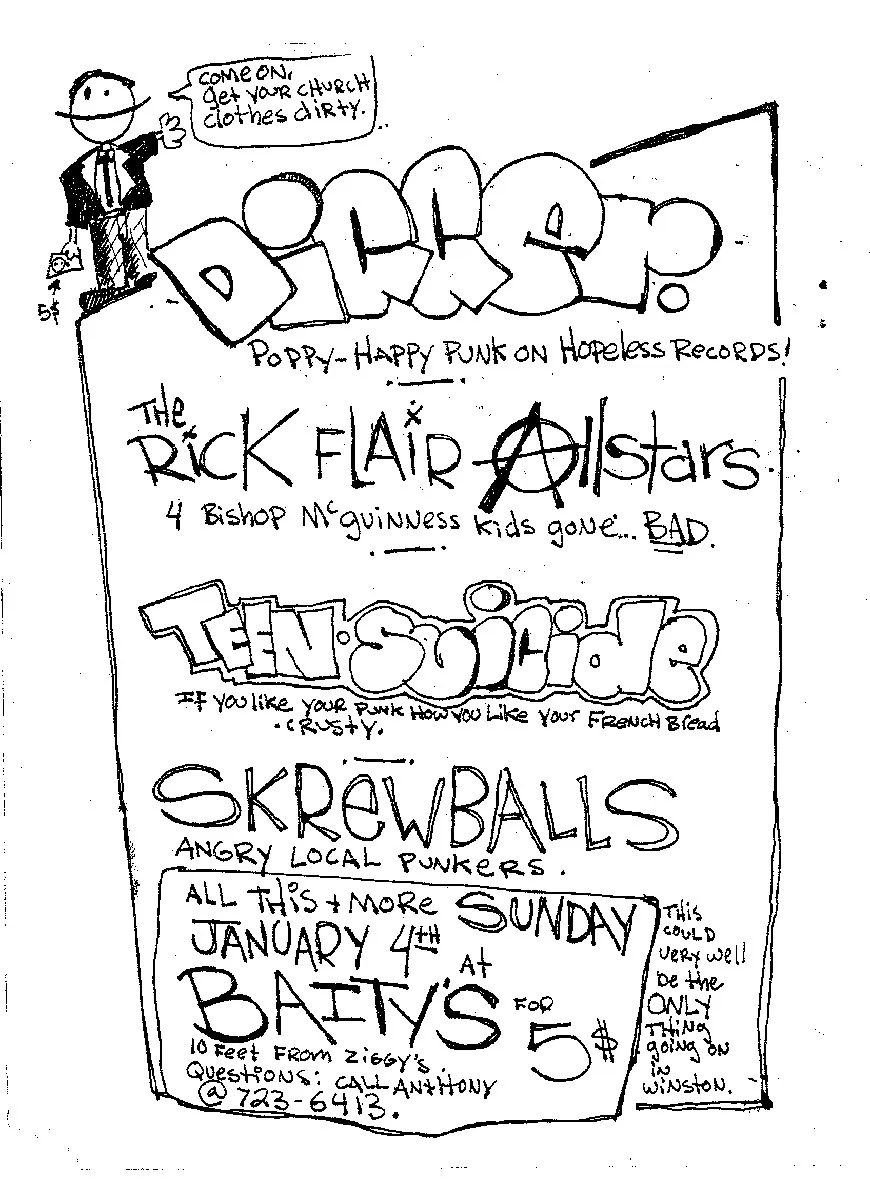 COME ON,
get YOUR CHURCH
clothes dirty.
5$
Differ.
POPPY-HAPPY PUNK ON HOPELESS RECORDS!
THE
RICK FLAIR Allstars
4 Bishop McGuinness kids gone... BAD.
TEEN·SUICIDE
If you like your punk how you like your FRENCH Bread
·CRUSTY.
SKREWBALLS
ANGRY LOCAL PUNKERS.
ALL THIS + MORE SUNDAY
JANUARY 4TH
At
BAITY'S FOR 5$
10 Feet FROM ZIGGY'S.
QUESTIONS: CALL ANTHONY
@ 723-6413.
THIS
COULD
very well
be the
ONLY
THING
going on
in
WINSTON.